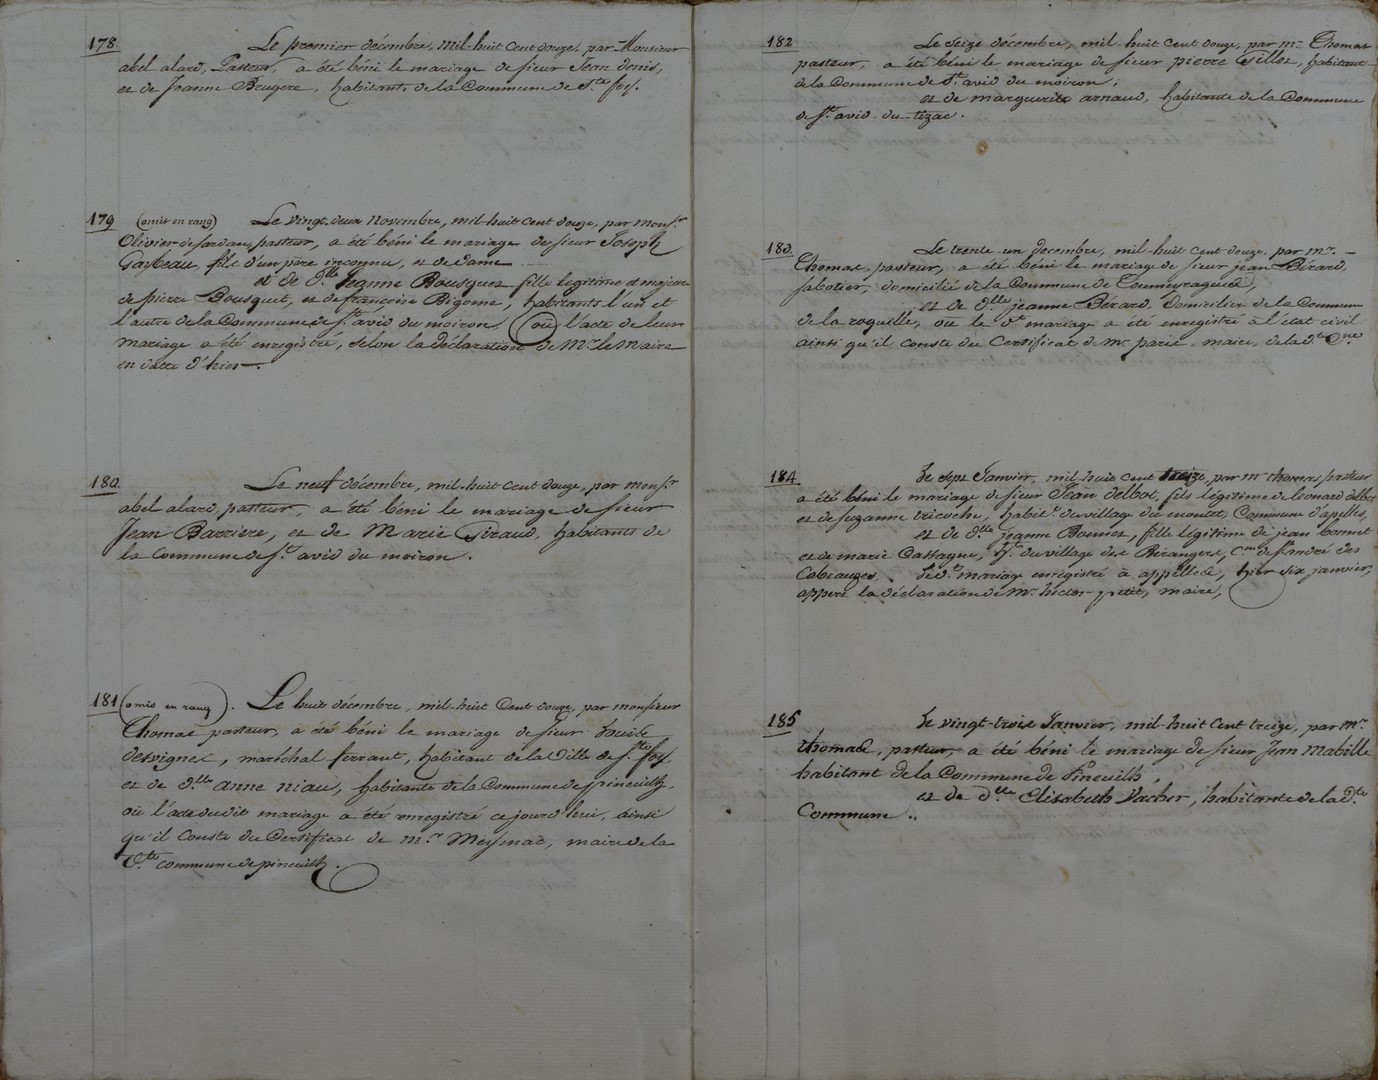 178. Le premier décembre, mil-huit cent douze, par Monsieur
abel alard, Pasteur, a été béni le mariage de sieur Jean denis,
et de Jeanne Brugere, habitants de la Commune de Ste foy.
179 (omis en rang) Le vingt-deux novembre, mil-huit cent douze, par monsr
Olivier de sardan, pasteur, a été béni le mariage de sieur Joseph
fils d'un père inconnu, et de dame
et de dlle Jeanne Bousquet fille legitime et majeure
de pierre Bousquet, et de françoise Bigorne, habitants l'un et
l'autre de la Commune de St avid du moiron, où l'acte de leur
mariage a été enregistré, selon la déclaration de Mr le Maire
en datte d'hier.
180. Le neuf décembre, mil-huit cent douze, par monsr
abel alard, pasteur, a été béni le mariage de sieur
Jean Barriere, et de Marie Giraud, habitants de
la Commune de St avid du moiron.
181 (omis en rang). Le huit décembre, mil-huit Cent douze, par monsieur
Thomas pasteur, a été béni le mariage de sieur Louis
desvignes, maréchal ferrant, habitant de la Ville de Ste foy,
et de dlle anne niau, habitante de la Commune de pineuilh,
où l'acte dudit mariage a été enregistré ce jourd'hui, ainsi
qu'il Conste du Certificat de mr Meymac, maire de la
dte commune de pineuilh.
182 Le seize décembre, mil-huit cent douze, par mr Thomas
pasteur, a été béni le mariage de sieur pierre Gillet, habitant
de la Commune de St avid du moiron,
et de marguerite arnaud, habitante de la Commune
de St avid-du-tizac.
183. Le trente un decembre, mil-huit cent douze, par mr. -
Thomas, pasteur, a été béni le mariage de sieur jean Bérard,
sabotier, domicilié de la Commune de Toumeyragues,
et de dlle jeanne Bérard, Domiciliée de la Commune
de la roquille, où le dt mariage a été enregistré à l'état civil
ainsi qu'il conste du Certificat de mr paris, maire, de la dte Cne.
184 Le sept Janvier, mil-huit cent treize, par mr thomas pasteur
a été béni le mariage de sieur Jean delbos, fils légitime de léonard delbos
et de suzanne tricoche, habits du village du Commune d'apelles,
et de dlle jeanne Bonnet, fille légitime de jean bonnet
et de marie Cassagne, hte du village des Bérangers, Cne de St andré des
Cabeauzes. Le dt mariage enregistré à appelles, hier six janvier,
appert la déclaration de Mr hector petit, maire,
185 Le vingt-trois Janvier, mil-huit Cent treize, par mr
thomas, pasteur, a été béni le mariage de sieur Jean Mabille
habitant de la Commune de Pineuilh,
et de dlle Elisabeth Vacher, habitante de la dte
Commune.